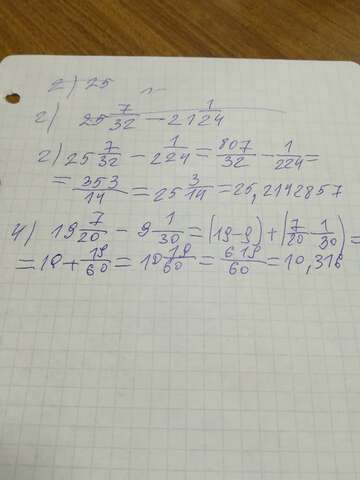 2) 25
2) 25 7/32 - 1/2124
2) 25 7/32 - 1/224 = 807/32 - 1/224 =
= 353/14 = 25 3/14 = 25,2142857
4) 19 7/20 - 9 1/30 = (19-9) + (7/20 - 1/30) =
= 10 + 19/60 = 10 19/60 = 619/60 = 10,316